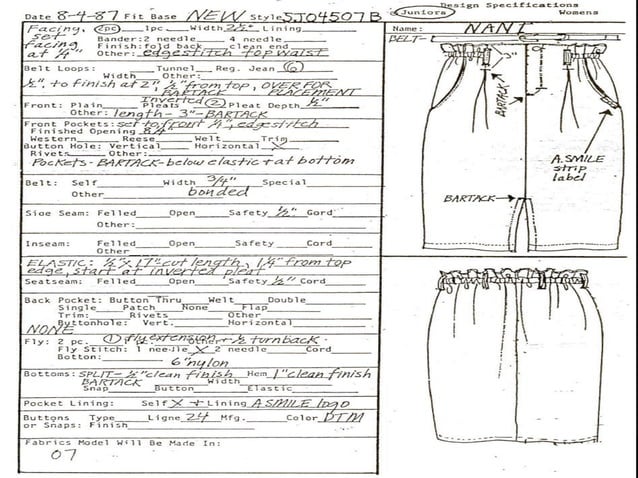 Design Specifications
Date 8-4-87 Fit Base NEW Style SJ04507B
Juniors Womens
Facing, 2pc 1pc. Width 2½" Lining
set Bander: 2 needle 4 needle
facing Finish: fold back clean end
at ¼" Other: edgestitch top waist
Name: NANI
BELT-
Belt Loops: Tunnel Reg. Jean 6
Width Other:
½", to finish at 2", ½" from top, OVER FOR
BARTACK PLACEMENT
Inverted
Front: Plain Pleats 2 Pleat Depth ½"
Other: length- 3"-BARTACK
Front Pockets: set to front ¼", edgestitch
Finished Opening
Western Reese Welt Trim
Button Hole: Vertical Horizontal X
Rivets Other:
Pockets- BARTACK-below elastic + at bottom
Belt: Self Width ¾" Special
Other bonded
Side Seam: Felled Open Safety ½" Cord
Other:
Inseam: Felled Open Safety Cord
Other
ELASTIC: ½" X 17" cut length, 1¼" from top
edge, start at inverted pleat
Seatseam: Felled Open Safety ½" Cord
Back Pocket: Button Thru Welt Double
Single Patch None Flap
Trim: Rivets Other
Buttonhole: Vert. Horizontal
NONE
Fly: 2 pc. 1 fly extension Other ½ turnback.
Fly Stitch: 1 needle X 2 needle Cord
Botton:
6" nylon
Bottoms: SPLIT- ½" clean finish Hem 1" clean finish
BARTACK Width
Snap Button Elastic
Pocket Lining: Self X + Lining A SMILE logo
Buttons Type Ligne 24 Mfg. Color DTM
or Snaps: Finish
Fabrics Model Will Be Made In:
07
3"
BARTACK
A. SMILE
strip
label
BARTACK